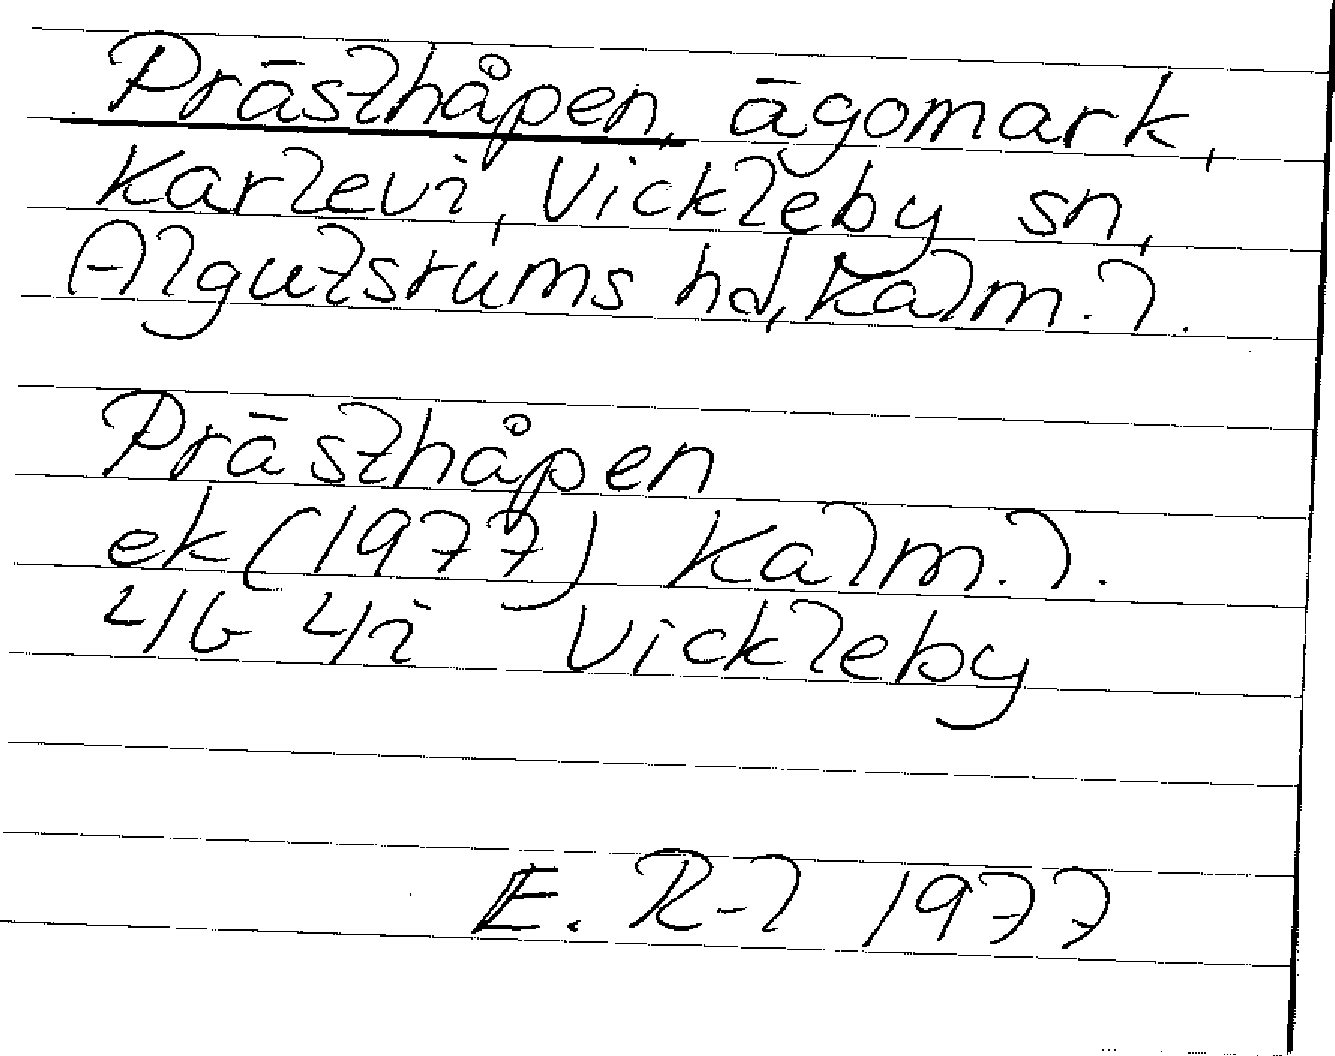 Prästhåpen, ägomark,
Karlevi, Vickleby sn,
Algutsrums hd, Kalm. l.
Prästhåpen
ek (1977) Kalm. l.
4G 4i Vickleby
E. R-l 1977